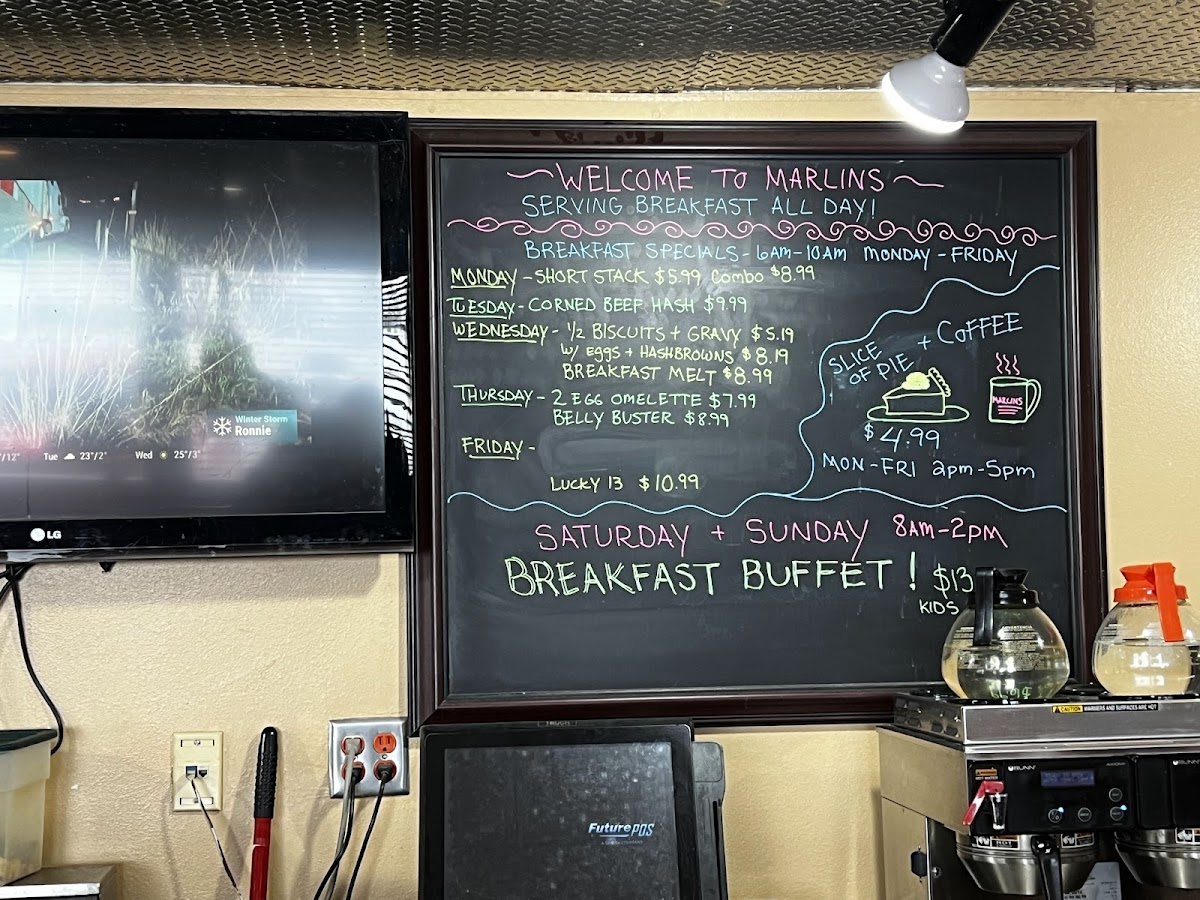 ~WELCOME TO MARLINS~
SERVING BREAKFAST ALL DAY!
BREAKFAST SPECIALS - 6AM-10AM MONDAY-FRIDAY
MONDAY - SHORT STACK $5.99 Combo $8.99
TUESDAY - CORNED BEEF HASH $9.99
WEDNESDAY - 1/2 BISCUITS + GRAVY $5.19
W/ EGGS + HASHBROWNS $8.19
BREAKFAST MELT $8.99
THURSDAY - 2 EGG OMELETTE $7.99
BELLY BUSTER $8.99
FRIDAY -
LUCKY 13 $10.99
SLICE OF PIE + COFFEE
MARLINS
$4.99
MON-FRI 2pm-5pm
SATURDAY + SUNDAY 8AM-2PM
BREAKFAST BUFFET! $13
KIDS
Winter Storm
Ronnie
/12° Tue 23°/2° Wed 25°/3°
LG
FuturePOS
CAUTION WARMERS AND SURFACES ARE HOT
BUNN
BUNN